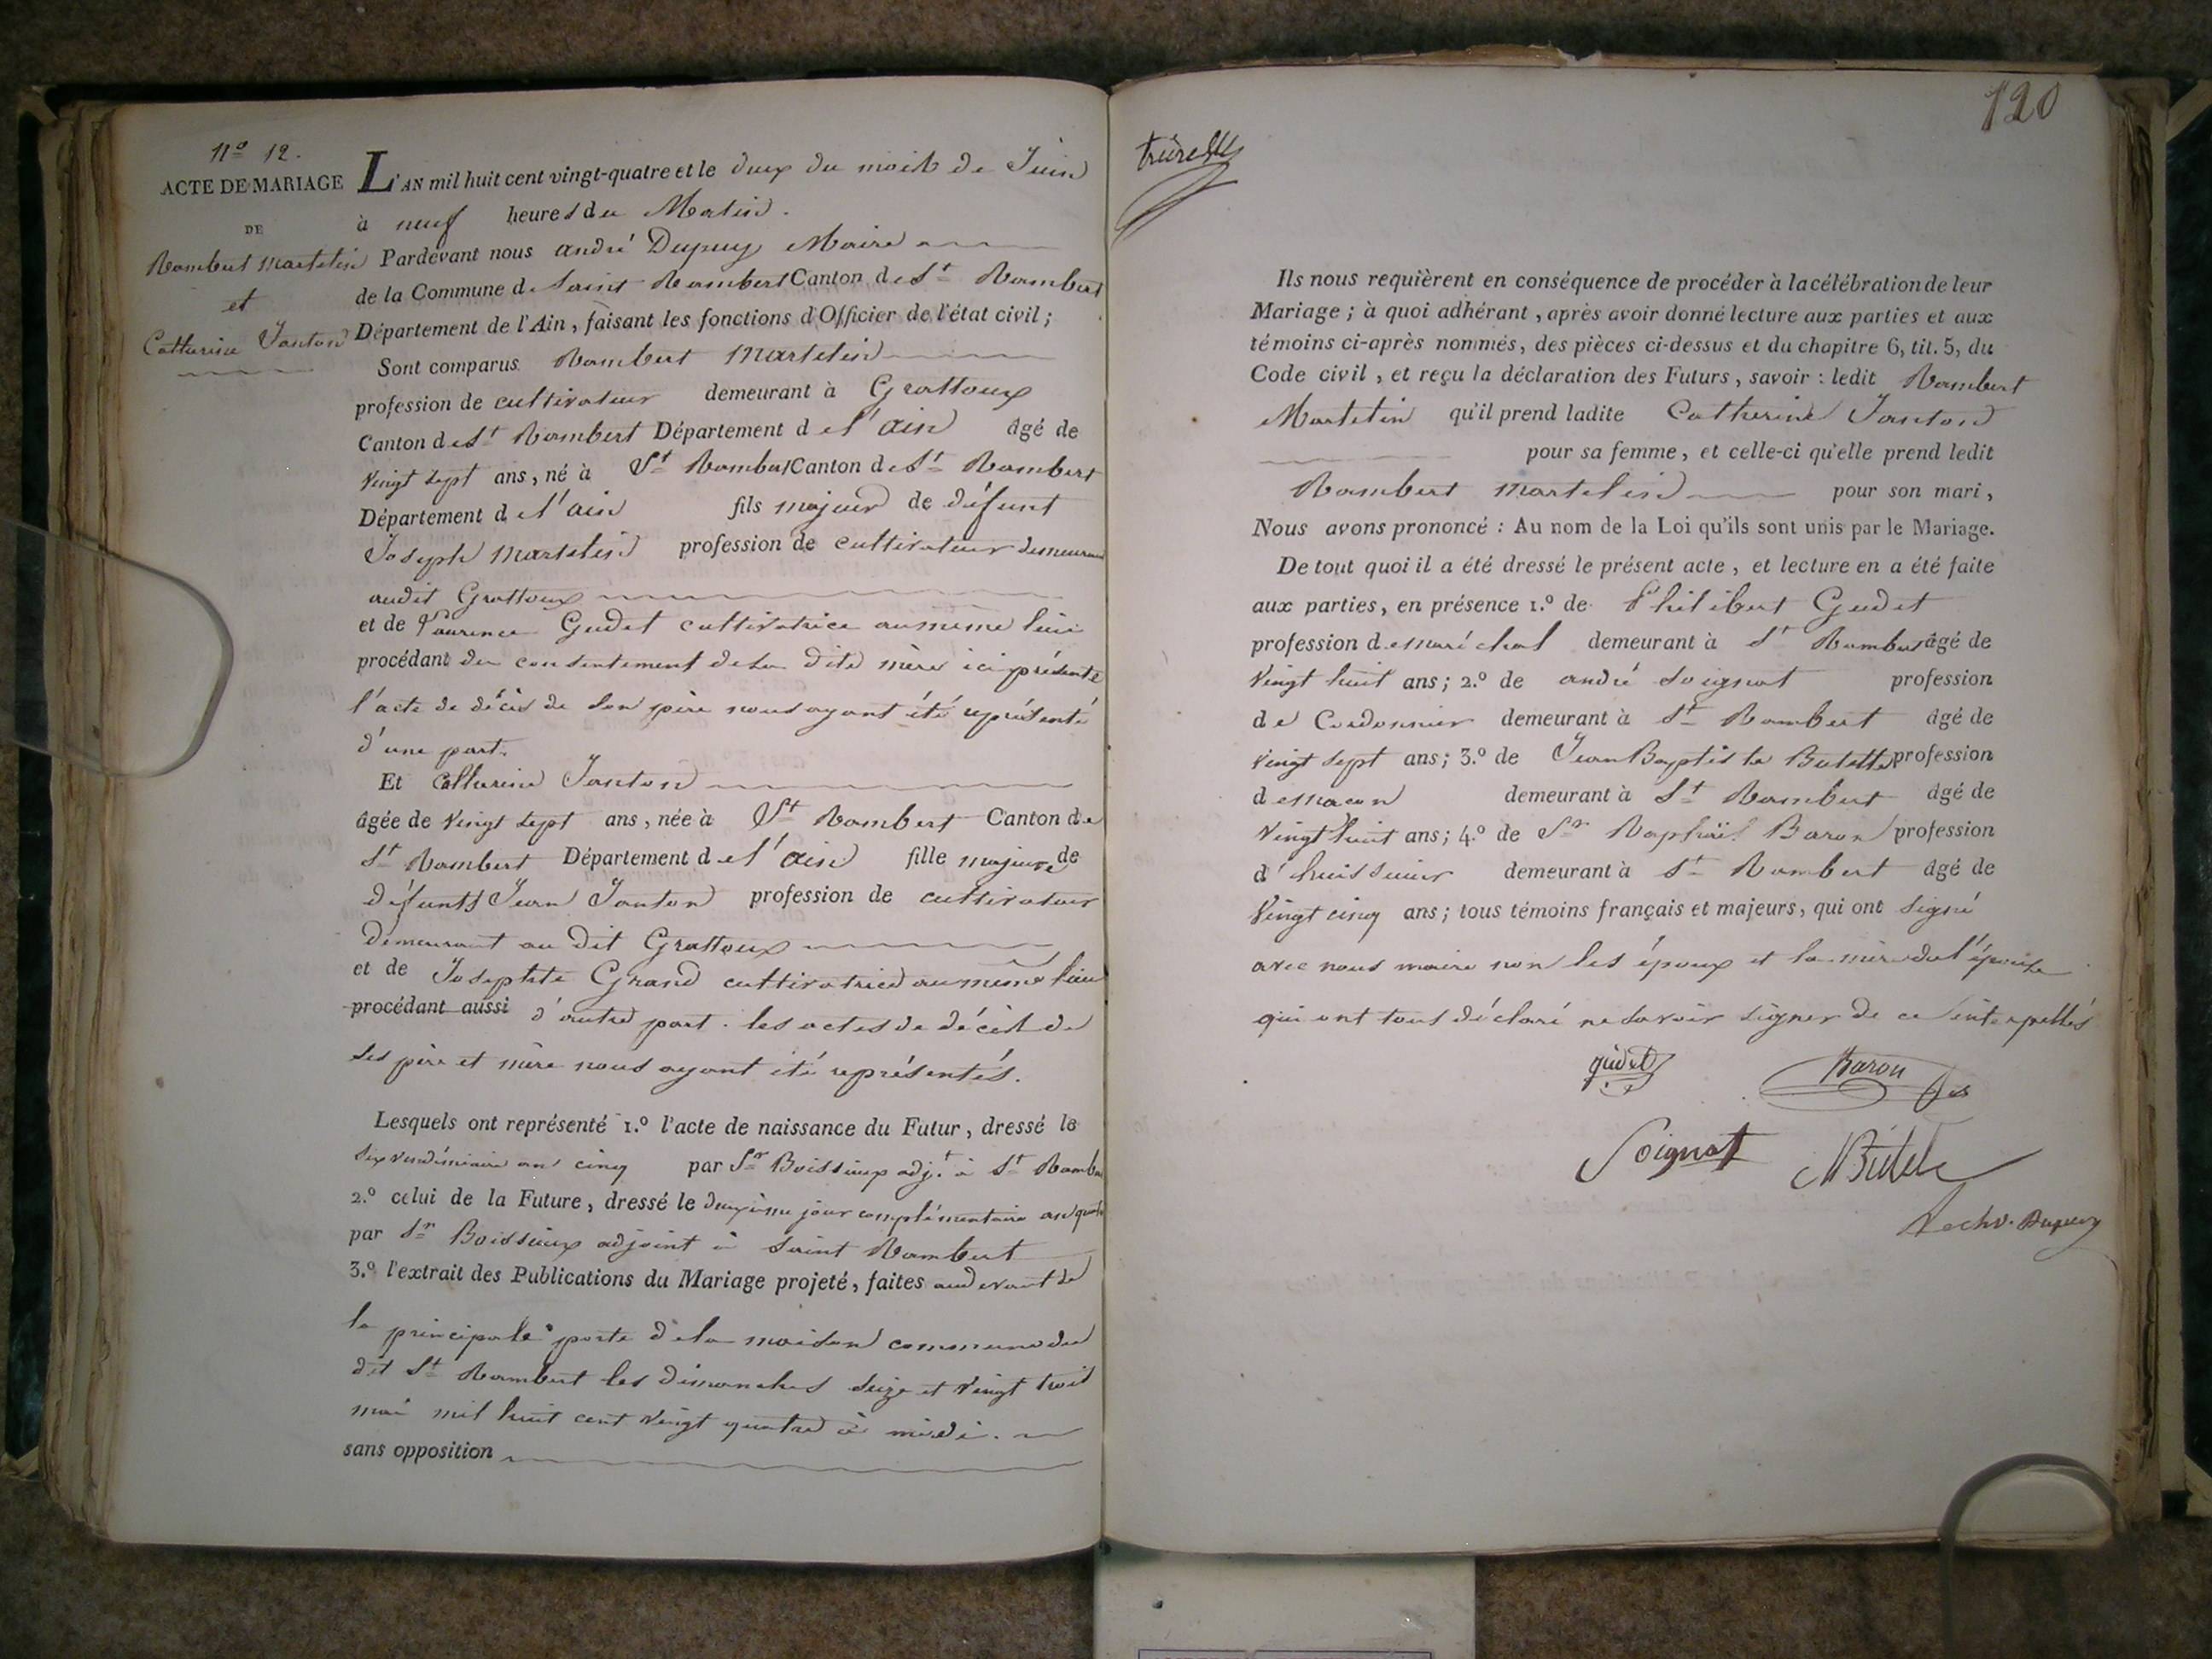 N.o 12.
ACTE DE MARIAGE
DE
Rambert Martelin
et
Catherine Janton
L'AN mil huit cent vingt-quatre et le deux du mois de Juin
à neuf heures du Matin.
Pardevant nous andré Dupuy Maire
de la Commune de Saint Rambert Canton de St Rambert
Département de l'Ain, faisant les fonctions d'Officier de l'état civil;
Sont comparus Rambert Martelin
profession de cultivateur demeurant à Grattoux
Canton de St Rambert Département de l'ain âgé de
vingt sept ans, né à St Rambert Canton de St Rambert
Département de l'ain fils majeur de défunt
Joseph Martelin profession de cultivateur demeurant
audit Grattoux
et de Laurence Gudet cultivatrice au meme lieu
procédant du consentement de sa dite mère ici présente
l'acte de décès de son père nous ayant été représenté
d'une part.
Et Catherine Janton
âgée de vingt sept ans, née à St Rambert Canton de
St Rambert Département de l'ain fille majeure de
défunts Jean Janton profession de cultivateur
demeurant au dit Grattoux
et de Josephte Grand cultivatrice au meme lieu
procédant aussi d'autre part. les actes de décès de
ses père et mère nous ayant été représentés.
Lesquels ont représenté 1.º l'acte de naissance du Futur, dressé le
six vendémiaire an cinq par Sr Boissieux adjt à St Rambert
2.º celui de la Future, dressé le deuxième jour complémentaire an quatre
par Sr Boissieux adjoint à Saint Rambert
3.º l'extrait des Publications du Mariage projeté, faites au devant de
la principale porte de la maison commune du
dit St Rambert les dimanches seize et vingt trois
mai mil huit cent vingt quatre à midi.
sans opposition
120
Ils nous requièrent en conséquence de procéder à la célébration de leur
Mariage; à quoi adhérant, après avoir donné lecture aux parties et aux
témoins ci-après nommés, des pièces ci-dessus et du chapitre 6, tit. 5, du
Code civil, et reçu la déclaration des Futurs, savoir: ledit Rambert
Martelin qu'il prend ladite Catherine Janton
pour sa femme, et celle-ci qu'elle prend ledit
Rambert Martelin pour son mari,
Nous avons prononcé: Au nom de la Loi qu'ils sont unis par le Mariage.
De tout quoi il a été dressé le présent acte, et lecture en a été faite
aux parties, en présence 1.º de Philibert Gudet
profession de maréchal demeurant à St Rambert âgé de
vingt huit ans; 2.º de andré Soignat profession
de Cordonnier demeurant à St Rambert âgé de
vingt sept ans; 3.º de Jean Baptiste Butette profession
de macon demeurant à St Rambert âgé de
vingt huit ans; 4.º de Sr Raphaël Baron profession
d'huissier demeurant à St Rambert âgé de
vingt cinq ans; tous témoins français et majeurs, qui ont signé
avec nous maire non les époux et la mère de l'épouse
qui ont tous déclaré ne savoir signer de ce interpellés
gudet
Baron
Soignat
Dupuy